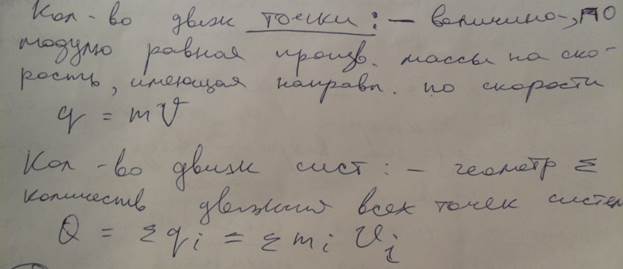 Кол-во движ точки: – величина, по
модулю равная произв. массы на ско-
рость, имеющая направл. по скорости
q = mV
Кол-во движ сист: – геометр Σ
количеств движения всех точек систем
Q = Σqi = Σmi Vi